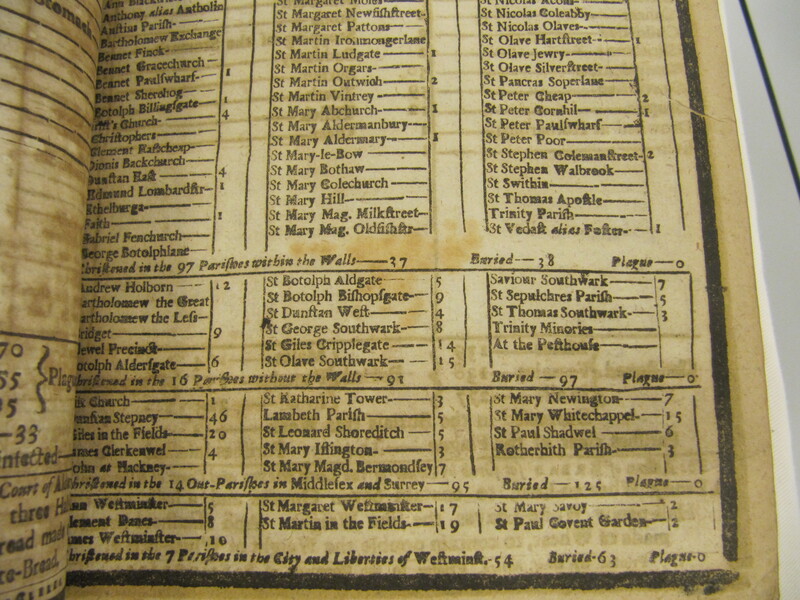 Stomach
Anthony alias Antholin
Austins Parish
Bartholomew Exchange
Bennet Finck
Bennet Gracechurch
Bennet Paulſwharf 1
Bennet Sherehog
Botolph Billingſgate 1
Church 4
Chriſtophers
Clement Eaſtcheap
Dionis Backchurch
Dunſtan Eaſt 4
Edmund Lombardſtr 1
Ethelburga
Faith 1
Gabriel Fenchurch
George Botolphlane
St Margaret Moſes
St Margaret Newfiſhſtreet
St Margaret Pattons
St Martin Ironmongerlane
St Martin Ludgate 1
St Martin Orgars
St Martin Outwich 2
St Martin Vintrey
St Mary Abchurch 1
St Mary Aldermanbury
St Mary Aldermary 1
St Mary-le-Bow
St Mary Bothaw
St Mary Colechurch
St Mary Hill
St Mary Mag. Milkſtreet
St Mary Mag. Oldfiſhſtr
St Nicolas Acons
St Nicolas Coleabby
St Nicolas Olaves
St Olave Hartſtreet 1
St Olave Jewry
St Olave Silverſtreet
St Pancras Soperlane
St Peter Cheap 2
St Peter Cornhil 1
St Peter Paulſwharf
St Peter Poor
St Stephen Colemanſtreet 2
St Stephen Walbrook
St Swithin
St Thomas Apoſtle
Trinity Pariſh
St Vedaſt alias Foſter 1
hriſtened in the 97 Pariſhes within the Walls 37 Buried 38 Plague 0
Andrew Holborn 12
artholomew the Great
artholomew the Leſs
ridget 9
ewel Precinct
otolph Alderſgate 6
St Botolph Aldgate 5
St Botolph Biſhopſgate 9
St Dunſtan Weſt 4
St George Southwark 8
St Giles Cripplegate 14
St Olave Southwark 15
Saviour Southwark 7
St Sepulchres Pariſh 5
St Thomas Southwark 3
Trinity Minories
At the Peſthouſe
hriſtened in the 16 Pariſhes without the Walls 91 Buried 97 Plague 0
Church 1
unſtan Stepney 46
iles in the Fields 20
ames Clerkenwel 4
ohn at Hackney
St Katharine Tower 3
Lambeth Pariſh 5
St Leonard Shoreditch 5
St Mary Iſlington 3
St Mary Magd. Bermondſey 7
St Mary Newington 7
St Mary Whitechappel 15
St Paul Shadwel 6
Rotherhith Pariſh 3
hriſtened in the 14 Out-Pariſhes in Middleſex and Surrey 95 Buried 125 Plague 0
nn Weſtminſter 5
lement Danes 8
ames Weſtminſter 10
St Margaret Weſtminſter 17
St Martin in the Fields 19
St Mary Savoy 2
St Paul Covent Garden 2
hriſtened in the 7 Pariſhes in the City and Liberties of Weſtminſt. 54 Buried 63 Plague 0
70
55
95
Plag
33
infected
Court of
three
read made
te-Bread,